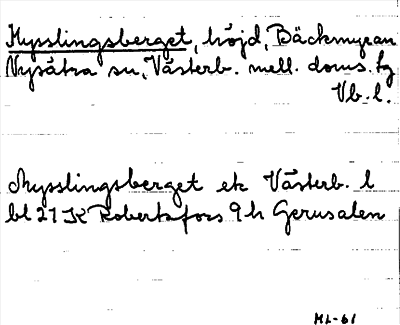 Mysslingsberget, höjd, Bäckmyran
Nysätra sn, Västerb. mell. doms. fg
Vb. l.
Mysslingsberget ek Västerb. l
bl 21 K Robertsfors 9 h Gerusalen
ML-61